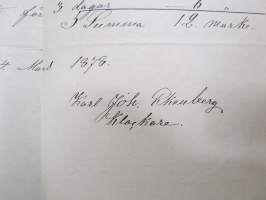 för 3 dagar — 6 "
S Summa 12 mark.
4. Mars 1878.
Karl Joh. Ekenberg
Klockare.